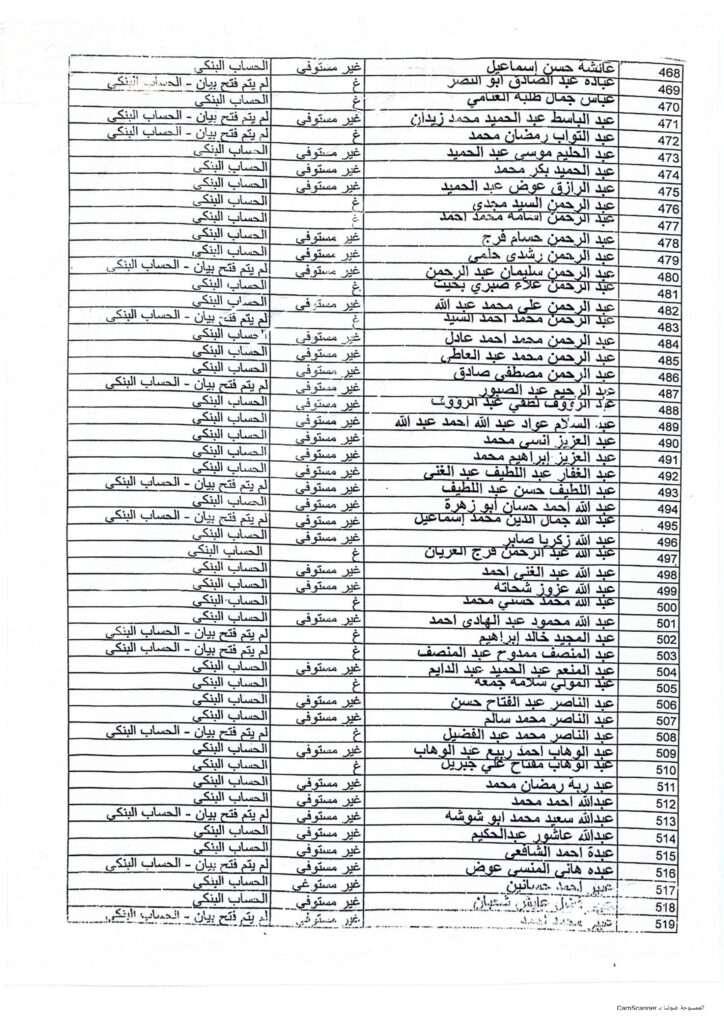 468 عائشه حسن إسماعيل غير مستوفي الحساب البنكي
469 عباده عبد الصادق ابو النصر غ لم يتم فتح بيان - الحساب البنكي
470 عباس جمال طلبه العنامي غ الحساب البنكي
471 عبد الباسط عبد الحميد محمد زيدان غير مستوفي لم يتم فتح بيان - الحساب البنكي
472 عبد التواب رمضان محمد غ لم يتم فتح بيان - الحساب البنكي
473 عبد الحليم موسى عبد الحميد غير مستوفي الحساب البنكي
474 عبد الحميد بكر محمد غير مستوفي الحساب البنكي
475 عبد الرازق عوض عبد الحميد غير مستوفي الحساب البنكي
476 عبد الرحمن السيد مجدي غ الحساب البنكي
477 عبد الرحمن اسامه محمد احمد غ الحساب البنكي
478 عبد الرحمن حسام فرج غير مستوفي الحساب البنكي
479 عبد الرحمن رشدى حلمى غير مستوفي الحساب البنكي
480 عبد الرحمن سليمان عبد الرحمن غير مستوفي لم يتم فتح بيان - الحساب البنكي
481 عبد الرحمن علاء صبري بخيت غ الحساب البنكي
482 عبد الرحمن على محمد عبد الله غير مستوفي الحساب البنكي
483 عبد الرحمن محمد احمد السيد غ لم يتم فتح بيان - الحساب البنكي
484 عبد الرحمن محمد احمد عادل غير مستوفي الحساب البنكي
485 عبد الرحمن محمد عبد العاطى غير مستوفي الحساب البنكي
486 عبد الرحمن مصطفى صادق غير مستوفي الحساب البنكي
487 عبد الرحيم عبد الصبور غير مستوفي لم يتم فتح بيان - الحساب البنكي
488 عبد الرؤوف لطفي عبد الرؤوف غير مستوفي الحساب البنكي
489 عبد السلام عواد عبد الله احمد عبد الله غير مستوفي الحساب البنكي
490 عبد العزيز انسي محمد غير مستوفي الحساب البنكي
491 عبد العزيز إبراهيم محمد غير مستوفي الحساب البنكي
492 عبد الغفار عبد اللطيف عبد الغنى غير مستوفي الحساب البنكي
493 عبد اللطيف حسن عبد اللطيف غير مستوفي لم يتم فتح بيان - الحساب البنكي
494 عبد الله احمد حسان أبو زهرة غير مستوفي الحساب البنكي
495 عبد الله جمال الدين محمد إسماعيل غير مستوفي لم يتم فتح بيان - الحساب البنكي
496 عبد الله زكريا صابر غير مستوفي الحساب البنكي
497 عبد الله عبد الرحمن فرج العريان غ الحساب البنكي
498 عبد الله عبد الغنى احمد غير مستوفي الحساب البنكي
499 عبد الله عزوز شحاته غير مستوفي الحساب البنكي
500 عبد الله محمد حسني محمد غ الحساب البنكي
501 عبد الله محمود عبد الهادى احمد غير مستوفي الحساب البنكي
502 عبد المجيد خالد إبراهيم غ لم يتم فتح بيان - الحساب البنكي
503 عبد المنصف ممدوح عبد المنصف غ لم يتم فتح بيان - الحساب البنكي
504 عبد المنعم عبد الحميد عبد الدايم غير مستوفي الحساب البنكي
505 عبد المولي سلامه جمعه غ الحساب البنكي
506 عبد الناصر عبد الفتاح حسن غير مستوفي الحساب البنكي
507 عبد الناصر محمد سالم غير مستوفي الحساب البنكي
508 عبد الناصر محمد عبد الفضيل غ لم يتم فتح بيان - الحساب البنكي
509 عبد الوهاب احمد ربيع عبد الوهاب غير مستوفي الحساب البنكي
510 عبد الوهاب مفتاح علي جبريل غ الحساب البنكي
511 عبد ربة رمضان محمد غير مستوفي الحساب البنكي
512 عبدالله احمد محمد غير مستوفي الحساب البنكي
513 عبدالله سعيد محمد ابو شوشه غير مستوفي لم يتم فتح بيان - الحساب البنكي
514 عبدالله عاشور عبدالحكيم غير مستوفي الحساب البنكي
515 عبدة احمد الشافعى غير مستوفي الحساب البنكي
516 عبده هانى المنسى عوض غير مستوفي لم يتم فتح بيان - الحساب البنكي
517 عبير احمد حسانين غير مستوفي الحساب البنكي
518 شعبان غير مستوفي الحساب البنكي
519 عبير محمد غير مستوفي لم يتم فتح بيان - الحساب البنكي
الممسوحة ضوئيا بـ CamScanner